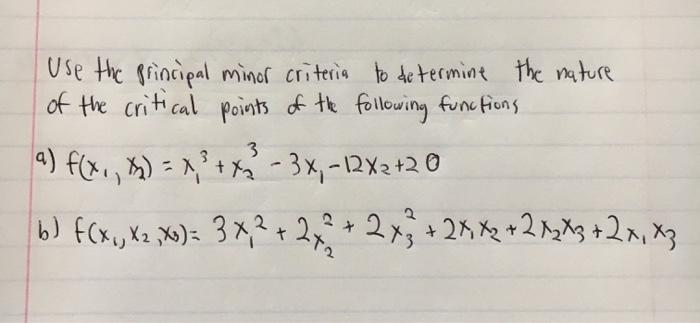 Use the principal minor criteria to determine the nature
of the critical points of the following functions
a) f(x₁, x₂) = x₁³ + x₂³ - 3x₁ - 12x₂ + 20
b) f(x₁, x₂, x₃) = 3x₁² + 2x₂² + 2x₃² + 2x₁x₂ + 2x₂x₃ + 2x₁x₃